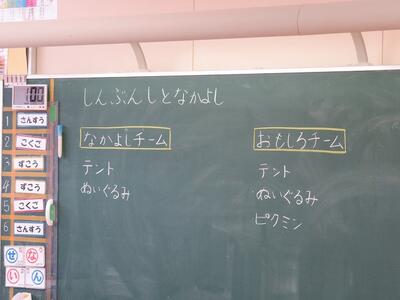 しんぶんしとなかよし
なかよしチーム
テント
ぬいぐるみ
おもしろチーム
テント
ぬいぐるみ
ピクミン
100
1 さんすう
2 こくご
3 ずこう
4 ずこう
5 こくご
6 さんすう
せ な
い ん